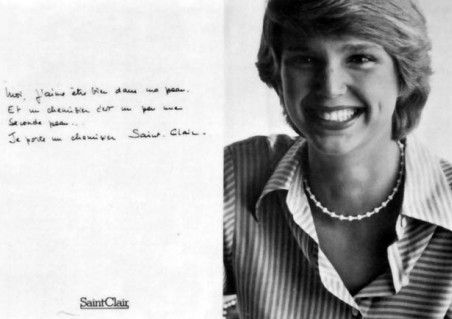 Moi, j'aime être bien dans ma peau.
Et un chemisier c'est un peu une
seconde peau...
Je porte un chemisier Saint-Clair.
SaintClair